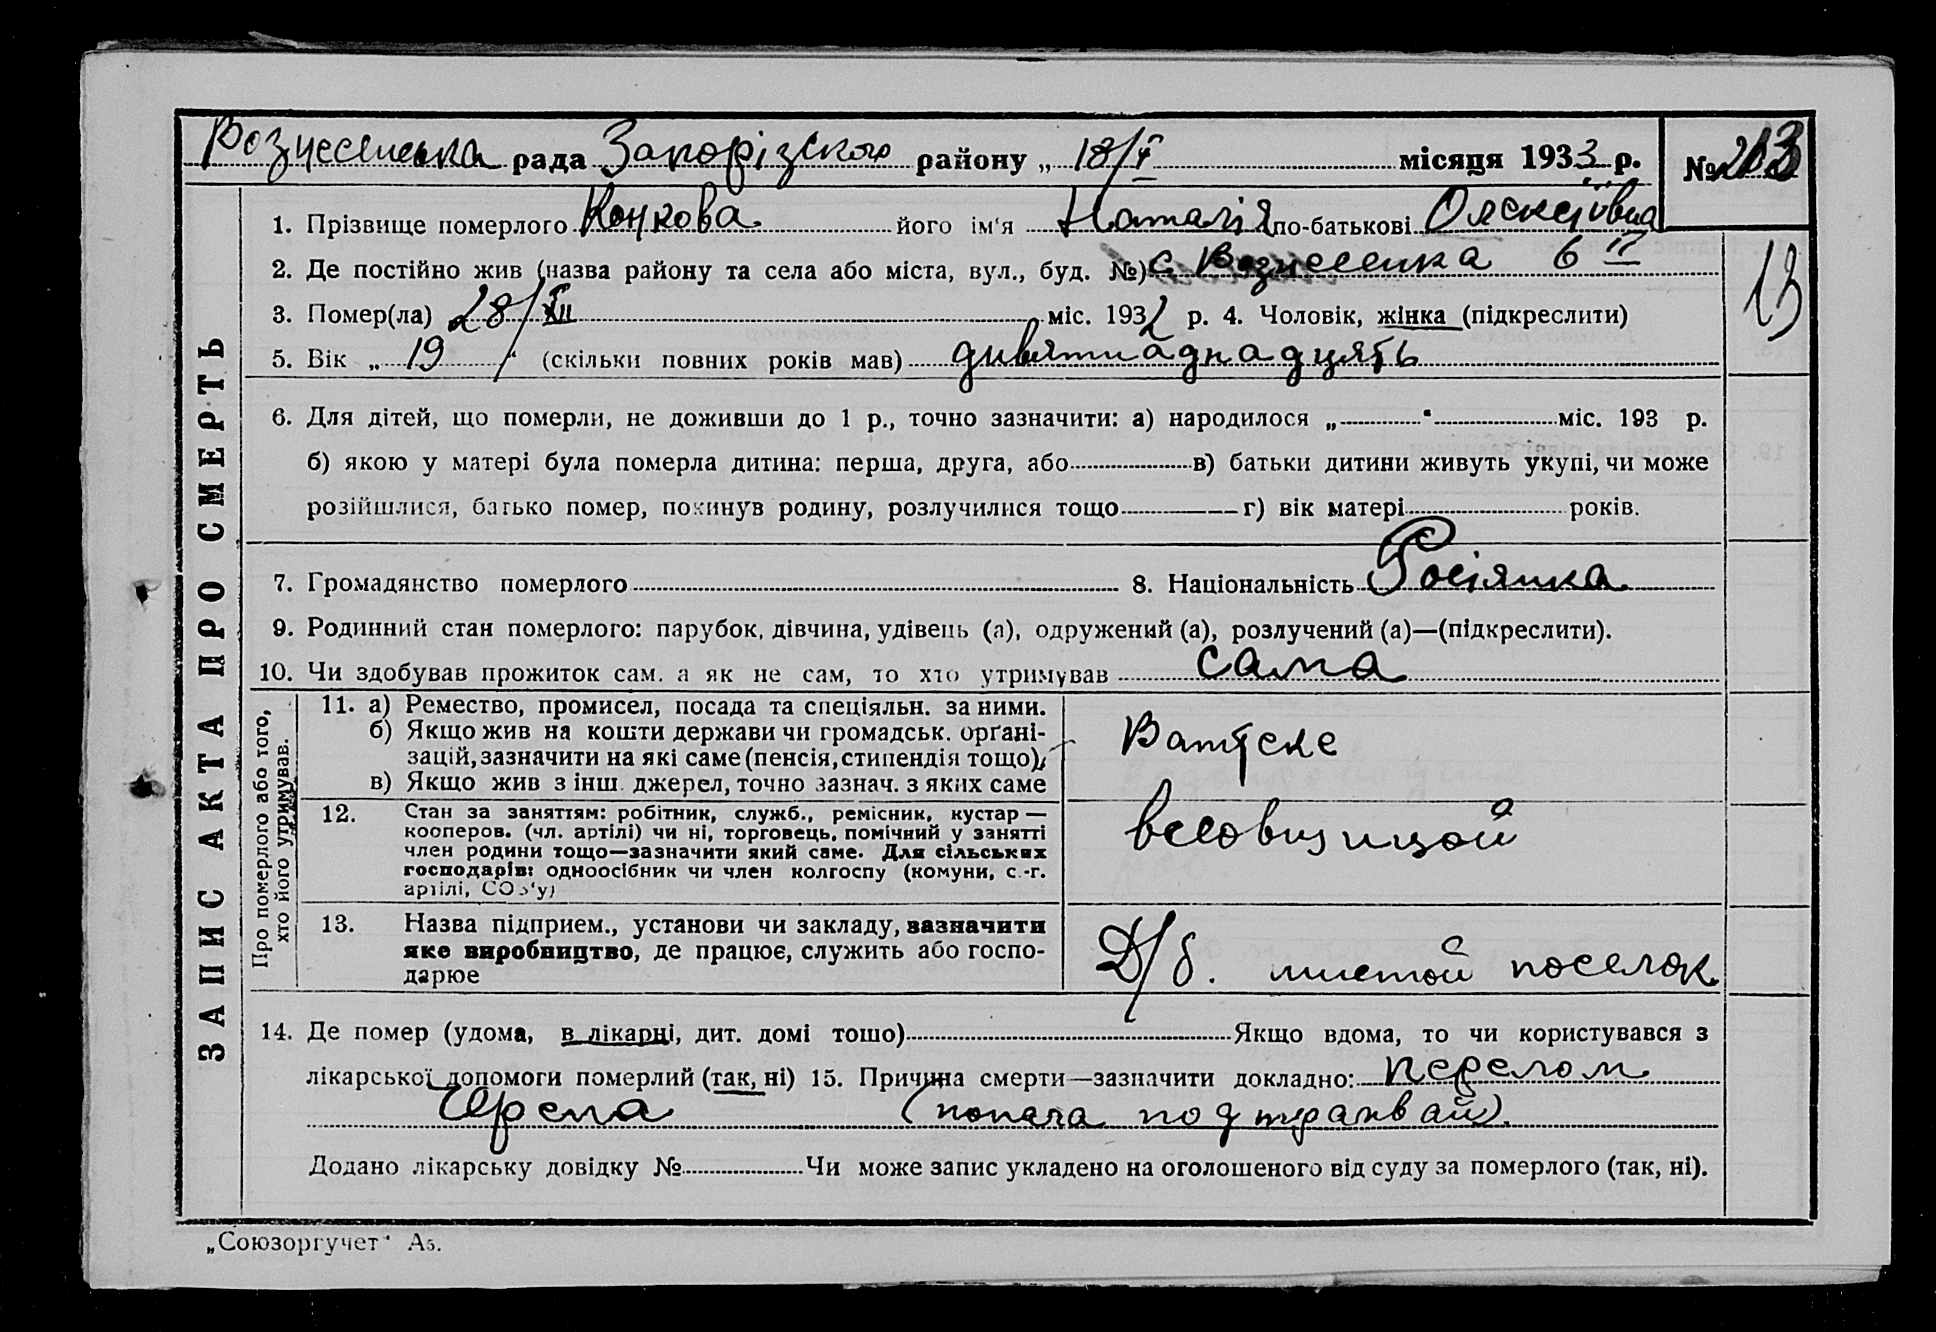 Вознесенська рада Запорізского району „ 18/V місяця 1933 р. № 213
1. Прізвище померлого Конкова його ім'я Наталія по-батькові Олексіївна
2. Де постійно жив (назва району та села або міста, вул., буд. №) с Вознесенка 6
13
3. Помер(ла) 28/XII міс. 1932 р. 4. Чоловік, жінка (підкреслити)
5. Вік „ 19 " (скільки повних років мав) дивятнаднадцять
6. Для дітей, що померли, не доживши до 1 р., точно зазначити: а) народилося „ " міс. 193 р.
б) якою у матері була померла дитина: перша, друга, або в) батьки дитини живуть укупі, чи може
розійшлися, батько помер, покинув родину, розлучилися тощо г) вік матері років.
7. Громадянство померлого 8. Національність Росіянка
9. Родинний стан померлого: парубок, дівчина, удівець (а), одружений (а), розлучений (а)—(підкреслити).
10. Чи здобував прожиток сам, а як не сам, то хто утримував сама
ЗАПИС АКТА ПРО СМЕРТЬ
Про померлого або того,
хто його утримував.
11. а) Ремество, промисел, посада та спеціяльн. за ними.
б) Якщо жив на кошти держави чи громадськ. органі-
зацій, зазначити на які саме (пенсія, стипендія тощо),
в) Якщо жив з інш. джерел, точно зазнач. з яких саме
12. Стан за заняттям: робітник, служб., ремісник, кустар —
кооперов. (чл. артілі) чи ні, торговець, помічний у занятті
член родини тощо—зазначити який саме. Для сільських
господарів: одноосібник чи член колгоспу (комуни, с.-г.
артілі, СОЗ'у)
весовщицой
13. Назва підприєм., установи чи закладу, зазначити
яке виробництво, де працює, служить або госпо-
дарює
Д/б. поселок
14. Де помер (удома, в лікарні, дит. домі тощо) Якщо вдома, то чи користувався з
лікарської допомоги померлий (так, ні) 15. Причина смерти—зазначити докладно: перелом
Черепа (попала под трамвай).
Додано лікарську довідку № Чи може запис укладено на оголошеного від суду за померлого (так, ні).
„Союзоргучет" А5.